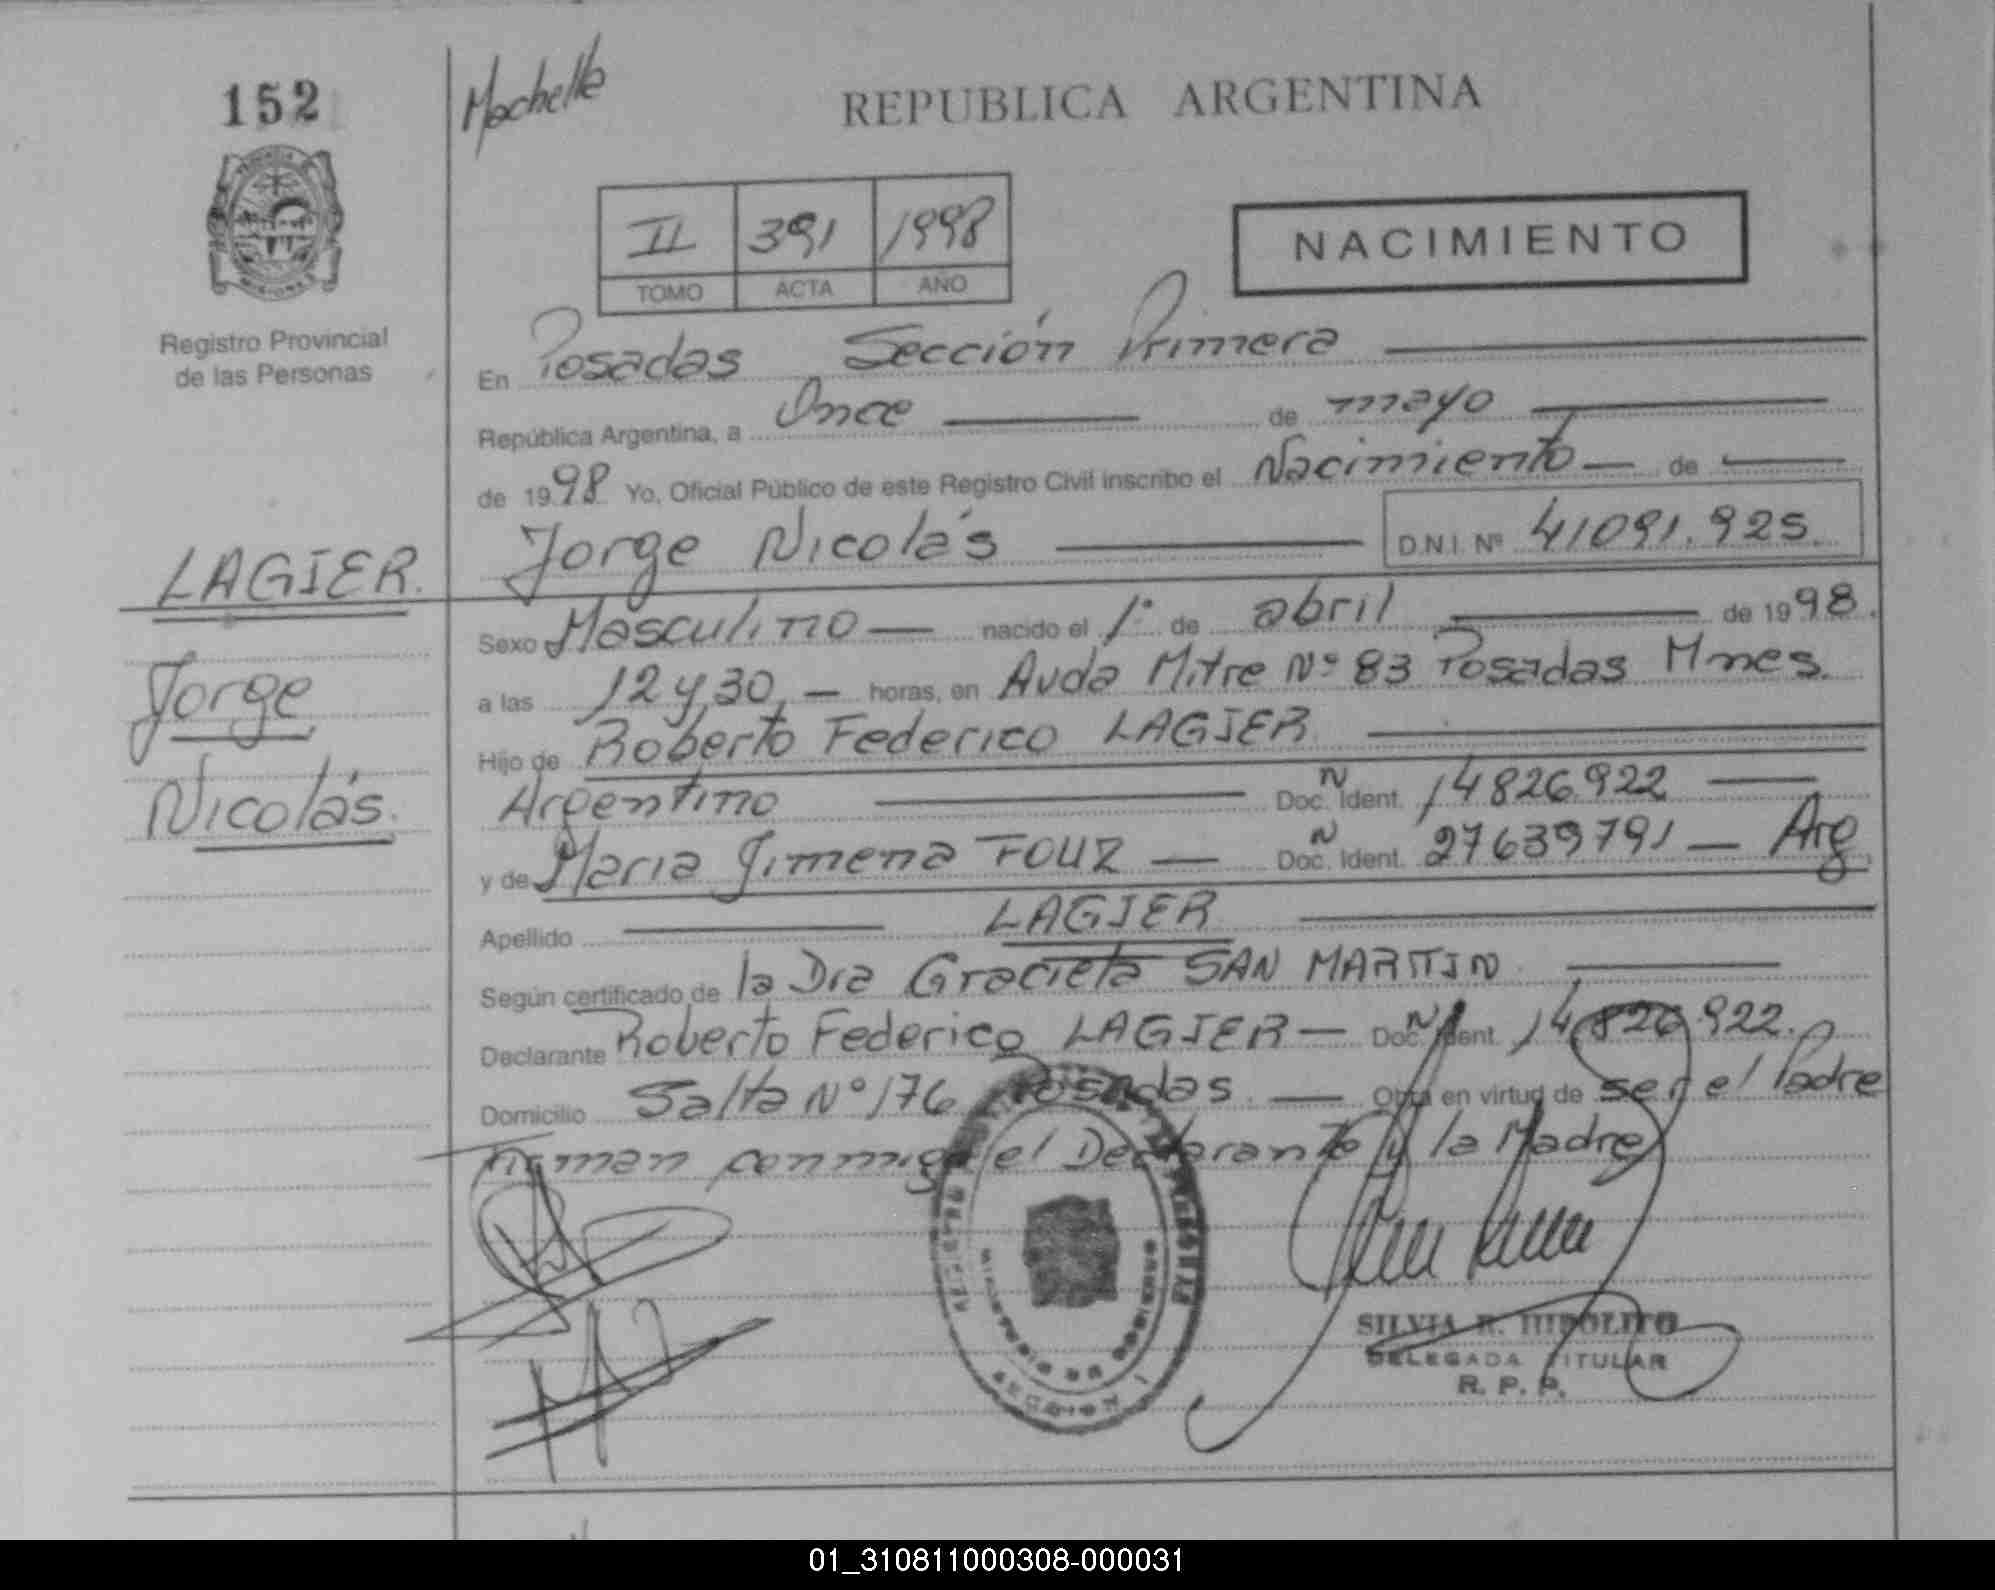 152
Mochella
REPUBLICA ARGENTINA
II 391 1998
TOMO ACTA AÑO
NACIMIENTO
PROVINCIA MISIONES
Registro Provincial
de las Personas
En Posadas Sección Primera
República Argentina, a Once de mayo
de 1998 Yo, Oficial Público de este Registro Civil inscribo el Nacimiento de
Jorge Nicolás D.N.I. Nº 41091.925.
LAGIER.
Jorge
Nicolás.
Sexo Masculino nacido el 1º de abril de 1998.
a las 12 y 30 horas, en Avda Mitre Nº 83 Posadas Mnes.
Hijo de Roberto Federico LAGIER
Argentino Doc. Ñ Ident. 14826.922
y de Maria Jimena FOUZ Doc. Ñ Ident. 27639791 Arg
Apellido LAGIER
Según certificado de la Dra Graciela SAN MARTIN
Declarante Roberto Federico LAGIER Doc. Ñ Ident. 14.826.922.
Domicilio Salta Nº 176 Posadas. Obra en virtud de ser el Padre
Firman conmigo el Declarante y la Madre
REGISTRO PROVINCIAL DE LAS PERSONAS
MINISTERIO DE GOBIERNO
SECCION I
SILVIA R. HIPOLITO
DELEGADA TITULAR
R. P. P.
01_310811000308-000031